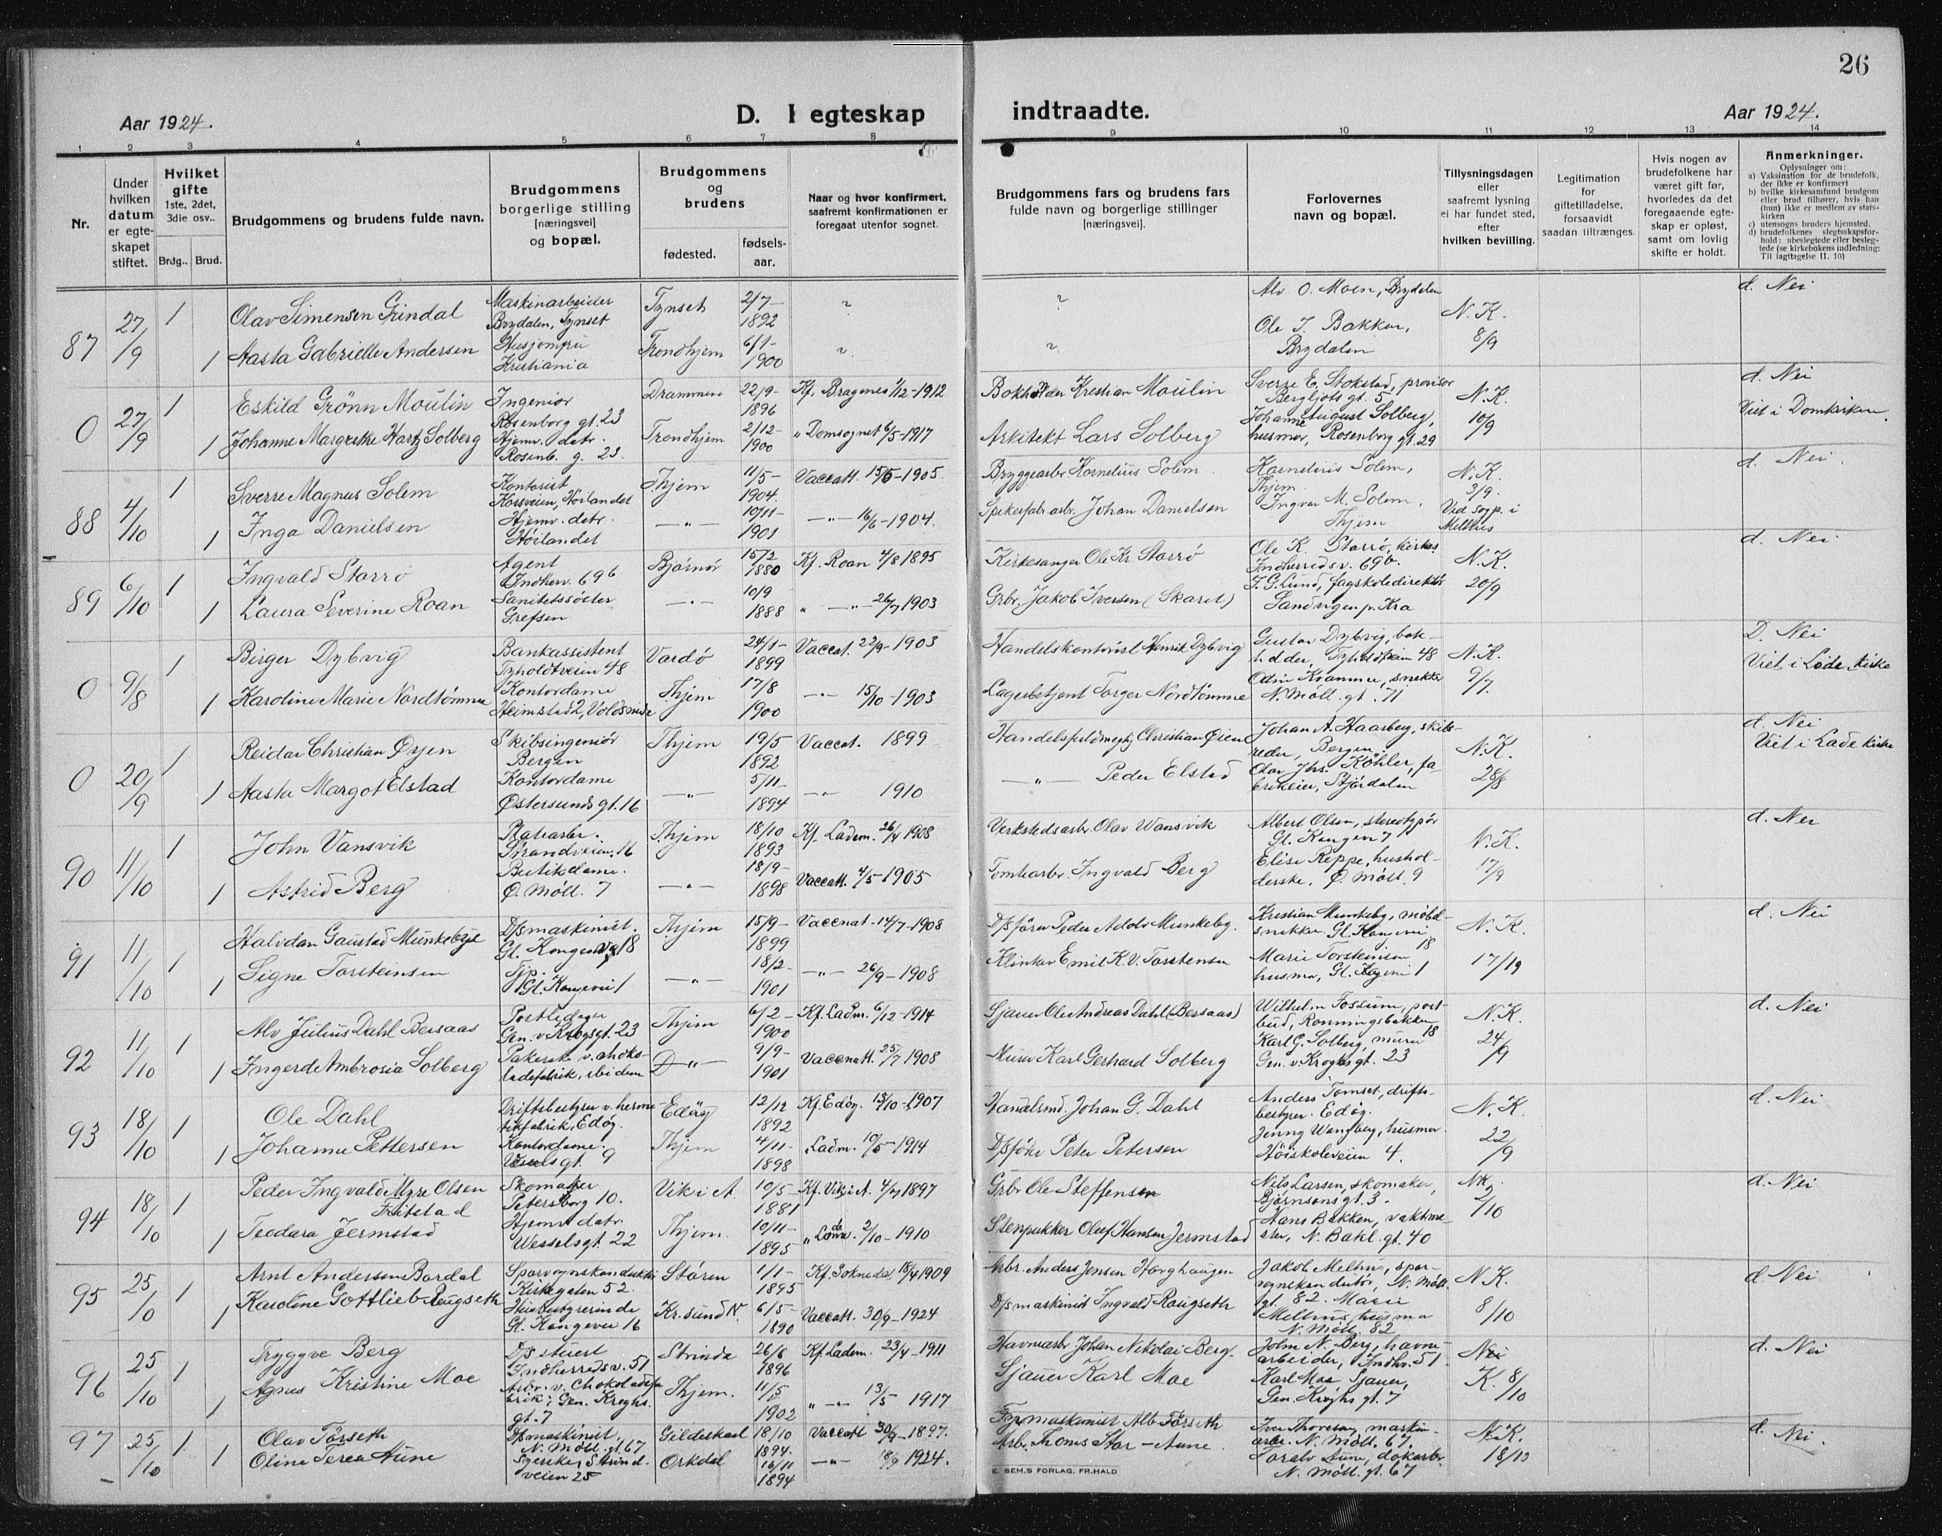 26
Aar 1924.
D. I egteskap
indtraadte.
Aar 1924.
1 2 3 4 5 6 7 8 9 10 11 12 13 14
Nr.
Under hvilken datum er egteskapet stiftet.
Hvilket gifte
1ste, 2det, 3die osv..
Brdg.. Brud.
Brudgommens og brudens fulde navn.
Brudgommens borgerlige stilling [næringsvei] og bopæl.
Brudgommens og brudens
fødested.
fødsels-aar.
Naar og hvor konfirmert, saafremt konfirmationen er foregaat utenfor sognet.
Brudgommens fars og brudens fars fulde navn og borgerlige stillinger [næringsvei].
Forlovernes navn og bopæl.
Tillysningsdagen eller saafremt lysning ei har fundet sted, efter hvilken bevilling.
Legitimation for giftetilladelse, forsaavidt saadan tiltrænges.
Hvis nogen av brudefolkene har været gift før, hvorledes da det foregaaende egteskap er opløst, samt om lovlig skifte er holdt.
Anmerkninger.
Oplysninger om:
a) Vaksination for de brudefolk, der ikke er konfirmert
b) hvilke kirkesamfund brudgom eller brud tilhører, hvis han (hun) ikke er medlem av statskirken
c) utensogns bruders hjemsted.
d) brudefolkenes slegtsskapsforhold: ubeslegtede eller beslegtede (se kirkebokens indledning: Til Iagttagelse II. 10)
87 27/9 1 Olav Simensen Grindal Maskinarbeider Brydalen, Tynset Tynset 2/7-1892 ? ? Alv O. Moen, Brydalen N. K. 8/9 d. Nei
1 Aasta Gabrielle Andersen Husjomfru Kristiania Trondhjem 6/1-1900 ? ? Ole J. Bakken, Brydalen
0 27/9 1 Eskild Grönn Moulin Ingeniör Rosenborg gt. 23 Drammen 22/9-1896 Kf. Bragenes 1/12-1912 Bokholder Kristian Moulin Sverre E. Stokstad, provisor Bergljots gt. 5 N. K. 10/9 d. Nei
1 Johanne Margrethe Hartz Solberg Hjemv. datr. Rosenb. g. 23. Trondhjem 2/12-1900 " Domsognet 6/5-1917 Arkitekt Lars Solberg Johanne August Solberg, husmor, Rosenborg gt. 29 Viet i Domkirken.
88 4/10 1 Sverre Magnus Solem Kontorist Korsveien, Höilandet Thjem 11/5-1904. Vaccatt 15/5-1905 Bryggearbr Kornelius Solem Kornelius Solem, Thjem. N. K. 3/9. Vid. sogp. i Melhus d. Nei.
1 Inga Danielsen Hjemv. datr. Höilandet -"- 10/11-1901 -"- 16/6-1904. Spikerfabr arbr. Johan Danielsen Ingvar M. Solem, Thjem
89 6/10 1 Ingvald Storrö Agent Indherr. 696 Björnör 15/2 1880 Kf. Roan 4/8 1895 Kirkesanger Ole Kr. Storrö Ole K. Storrö, kirkes. Indherredsv. 69b. N. K. 20/9 d. Nei
1 Laura Severine Roan Sanitetssöster Grefsen -"- 10/9 1888 " -"- 26/7 1903 Grbr. Jakob Iversen (Skaret) F. G. Lund, fagskoledirektör Sandvigen p. Kra
0 9/8 1 Birger Dybvig Bankassistent Tyholdtveien 48 Vardö 24/1-1899 Vaccat. 22/9-1903 Handelskontorist Henrik Dybvig Gustav Dybvig, bokholder, Tyholdtveien 48 N. K. 9/7. D. Nei
1 Karoline Marie Nordtömme Kontordame Heimstad 2, Voldsminde Thjem 17/8 1900 -"- 15/10-1903 Lagerbetjent Torger Nordtömme Odin Kvamme, snekker N. Möll. gt. 71 Viet i Lade kirke
0 20/9 1 Reidar Christian Öyen Skibsingeniör Bergen Thjem 19/5 1892 Vaccat. 1899 Handelsfuldmegtig Christian Öien Johan A. Haarberg, skibsreder, Bergen. N. K. 28/8 d. Nei
1 Aasta Margot Elstad Kontordame Östersunds gt. 16 -"- 5/11-1894 -"- 1910 -"- Peder Elstad Olav Jhs. Köhler, fabrikeier, Stjördalen Viet i Lade kirke
90 11/10 1 John Vansvik Platearbr. Strandveien 16 Thjem 18/10 1893 Kf. Ladem. 26/4 1908 Verkstedsarbr. Olav Wansvik Albert Olsen, stereotypör Gl. Kongev 7 N. K. 17/9 d. Nei
1 Astrid Berg Butikdame. Ö. Möll. 7 -"- 18/9-1898 Vaccatt. 4/5-1905 Tomtearbr. Ingvald Berg Elise Reppe, husholderske, Ö. Möll. 9
91 11/10 1 Halvdan Gaustad Munkebye D/s maskinist. Gl. Kongev. 18 Thjem 15/9-1899 Vaccnat-14/7-1908 D/s förer Peder Adolv Munkeby. Kristian Munkeby, möbelsnekker Gl. Kongevei 18 N. K. 17/19 d. Nei
1 Signe Torsteinsen Tjp. Gl. Kongevei 1 -"- 18/2-1901 -"- 26/9-1908 Klinker Emil K. V. Torstensen Marie Torsteinsen husmor, Gl. Kongevei 1
92 11/10 1 Alv Julius Dahl Bersaas Postledager Gen. v. Krogsgt. 23 Thjem 6/2-1900 Kf. Ladm. 6/12-1914 Sjauer Ole Andreas Dahl (Bersaas) Wilhelm Fossum, postbud, Ronningsbakken 18 N. K. 24/9 d. Nei
1 Ingerd Ambrosia Solberg Pakerske v. chokoladefabrik, ibidem D -"- 9/9-1901 Vaccnatt. 25/7 1908 Murer Karl Gerhard Solberg Karl G. Solberg, murer Gen. v. Kroghsgt. 23
93 18/10 1 Ole Dahl Driftsbestyrer v. hermetikfabrik, Edöy. Edöy 12/12 1892 Kf. Edöy. 13/10-1907 Handelsmd. Johan G. Dahl Anders Tomset, driftsbestyrer. Edöy. N. K. 22/9 d. Nei
1 Johanne Pettersen Kontordame Wesselsgt. 9 Thjem 4/11-1898 " Ladm. 10/5-1914 D/s förr Peter Petersen Jenny Wangberg, husmor. Höiskoleveien 4.
94 18/10 1 Peder Ingvald Myre Olsen Fristad Skomaker Petersborg 10. Vik i A 10/5-1881 Kf. Vik i A. 4/7 1897 Grbr Ole Steffensen Nils Larsen, skomaker, Björnsons gt. 3. NK. 2/10 d. Nei
1 Teodora Jermstad Hjemv. datr Wesselsgt. 22 Thjem. 10/11-1895 " Lade 2/10-1910 Stenpukker Oluf Hansen Jermstad Hans Bakken, vaktmester, N. Bakl. gt. 40
95 25/10 1 Arnt Andersen Bordal Sporvognskonduktör Kirkegaten 52. Stören 1/1-1895 Kf. Soknedal 18/4 1909 Arbr. Anders Jensen Haughaugen Jakob Melhus, sporvognskonduktör, N. Möll. gt. 82. N. K. 8/10 d. Nei
1 Karoline Gottlieb Raugseth Husbestyrerinde Gl. Kongevei 16 Kr.sund N. 6/5-1890 Vaccatt. 30/9-1924 D/s maskinist Ingvald Raugseth Marie Melhus, husmor N. Möll. 82
96 25/10 1 Tryggve Berg D/s stuert Indherredsv. 51 Strinda 26/6 1896 Kf. Ladem. 23/4-1911 Havnearbr Johan Nikolai Berg. John N. Berg, havnearbeider, Indhv. 51. N. K. 8/10 d. Nei
1 Agnes Kristine Moe Arbr. v. Chokoladefabrik, Gen. Kroghs. gt. 7 Thjem. 11/5 1902 " -"- 13/5 1917 Sjauer Karl Moe Karl Moe Sjauer, Gen. Kroghs gt. 7
97 25/10 1 Olav Törseth D/s maskinist, N. Möll. gt. 67 Gildeskaal 18/10 1894. Vaccatt 30/9-1897. Fyrmaskinist Alb. Törseth Iver Thoresen, maskinarbr. N. Möll. 67. N. K. 18/10 d. Nei.
1 Oline Terea Aune Syerske, Strindveien 25 Orkdal 16/11 1894 -"- 18/9 1924. Arb. Thoms Stor-Aune. Toralv Aune, dokarbr. N. Möll. gt. 67
E. SEM.S FORLAG, FR.HALD